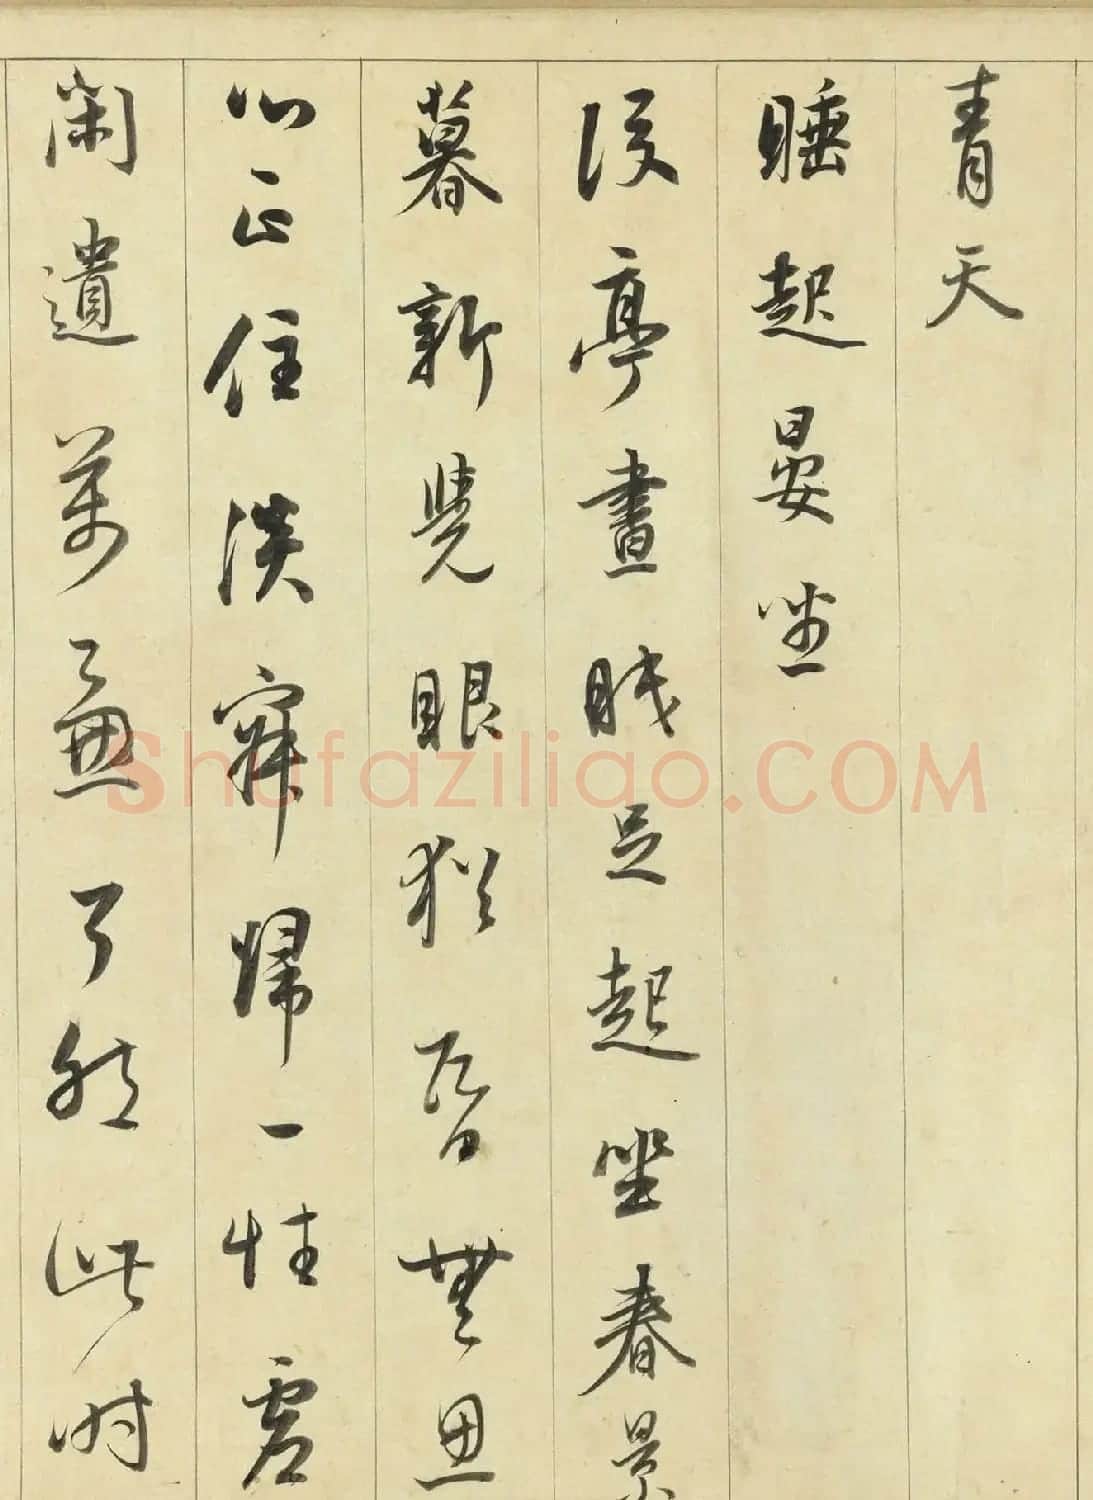 青天
睡起晏坐
後亭晝眠足起坐春景
暮新覺眼猶昏無思
心正住淡寂歸一性虛
閑遺萬慮了然此時
Shufaziliao.COM